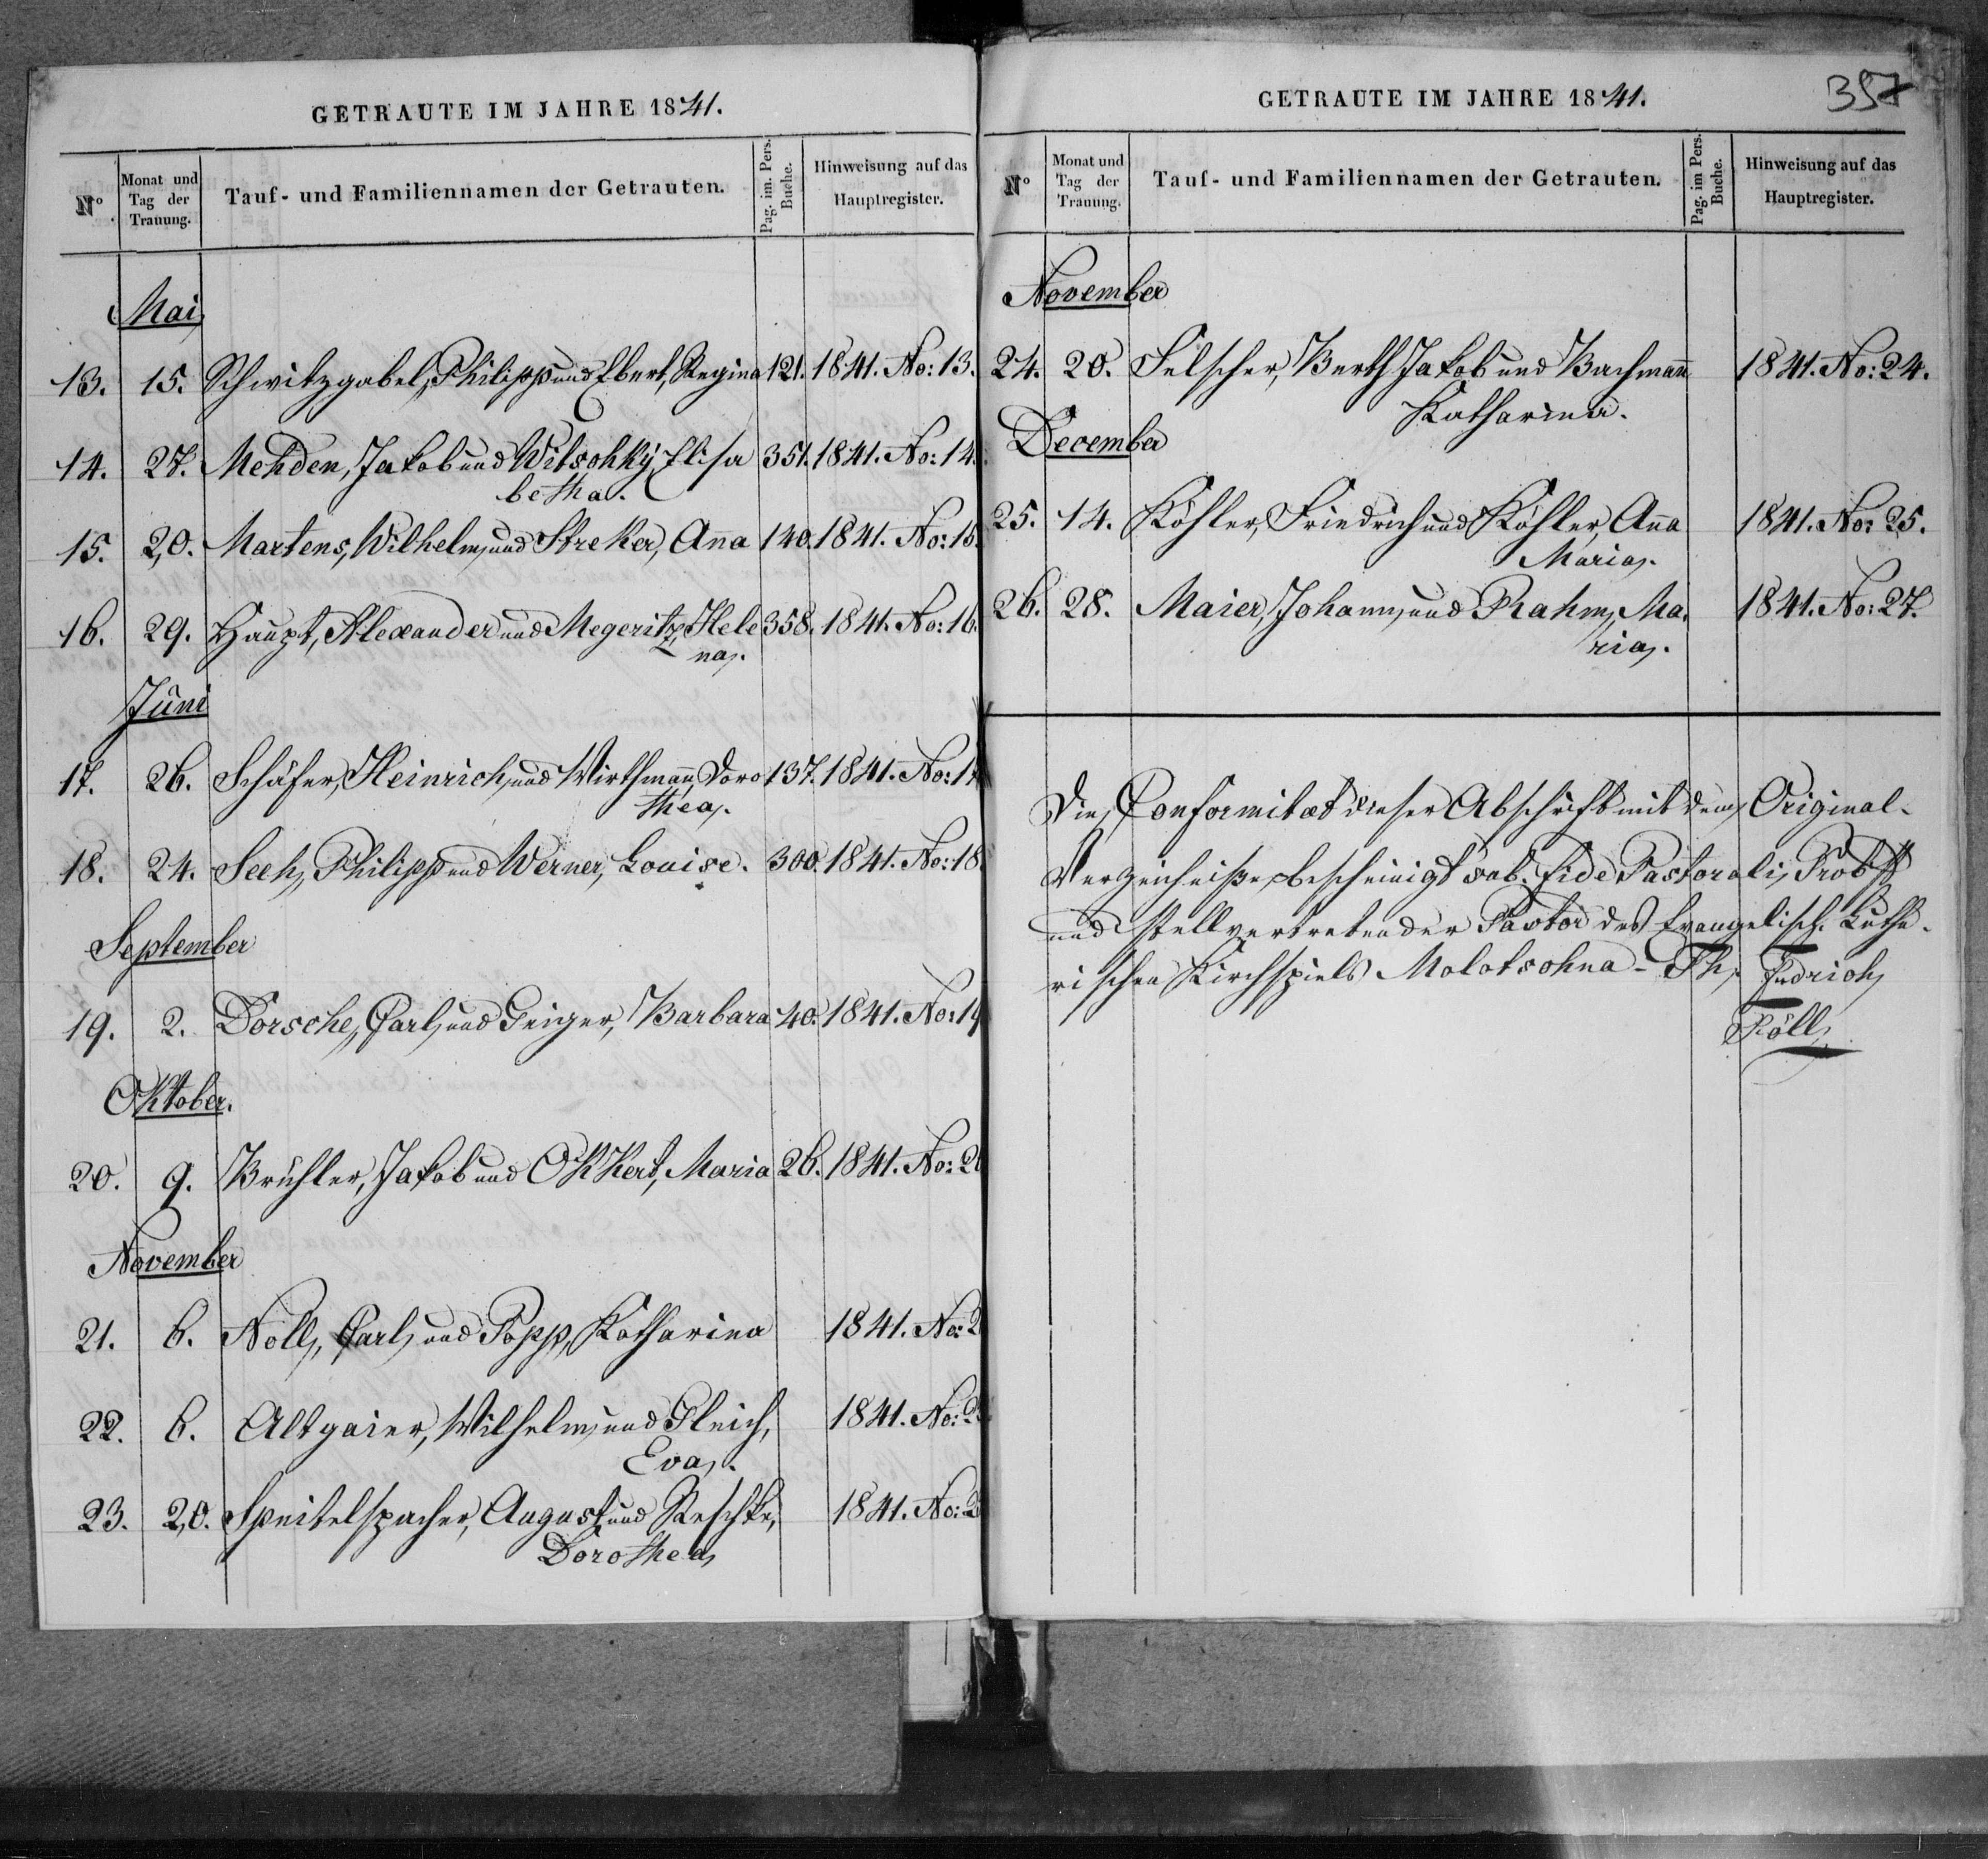 GETRAUTE IM JAHRE 1841.
No. Monat und Tag der Trauung. Tauf- und Familiennamen der Getrauten. Pag. im. Pers. Buche. Hinweisung auf das Hauptregister.
Mai
13. 15. Schwitzgabel, Philipp und Ebert, Regina 121. 1841. No: 13.
14. 27. Mehden, Jakob und Witschky, Elisa 351. 1841. No: 14.
betha.
15. 20. Martens, Wilhelm, und Streker, Anna 140. 1841. No: 15.
16. 29. Haupt, Alexander und Megeritz, Hele 358. 1841. No: 16.
na.
Juni
17. 26. Schäfer, Heinrich, und Wirthmann, Doro 137. 1841. No: 17
thea.
18. 24. Seeh, Philipp und Werner, Louise. 300. 1841. No: 18.
September
19. 2. Dorsche, Carl, und Geiger, Barbara 40. 1841. No: 19
Oktober.
20. 9. Brühler, Jakob und Okkert, Maria 26. 1841. No: 2
November
21. 6. Noll, Carl, und Popp, Katharina 1841. No: 2
22. 6. Altgaier, Wilhelm, und Gleich, 1841. No: 2
Eva.
23. 20. Speitelspacher, August und Reschke, 1841. No: 2
Dorothea
GETRAUTE IM JAHRE 1841.
357
No Monat und Tag der Trauung. Tauf- und Familiennamen der Getrauten. Pag. im Pers. Buche. Hinweisung auf das Hauptregister.
November
24. 20. Felscher, Berth Jakob und Bachmann 1841. No: 24.
Katharina.
December
25. 14. Köhler, Friedrich und Köhler, Anna 1841. No: 25.
Maria.
26. 28. Maier, Johann, und Rahm, Ma, 1841. No: 27.
ria.
Die Conformitaet dieser Abschrift mit dem Original-
Verzeichniße, bescheinigt sub. fide Pastorali, Probst
und stellvertretender Pastor des Evangelisch. Luthe-
rischen Kirchspiels Molotschna - Th.
Föll